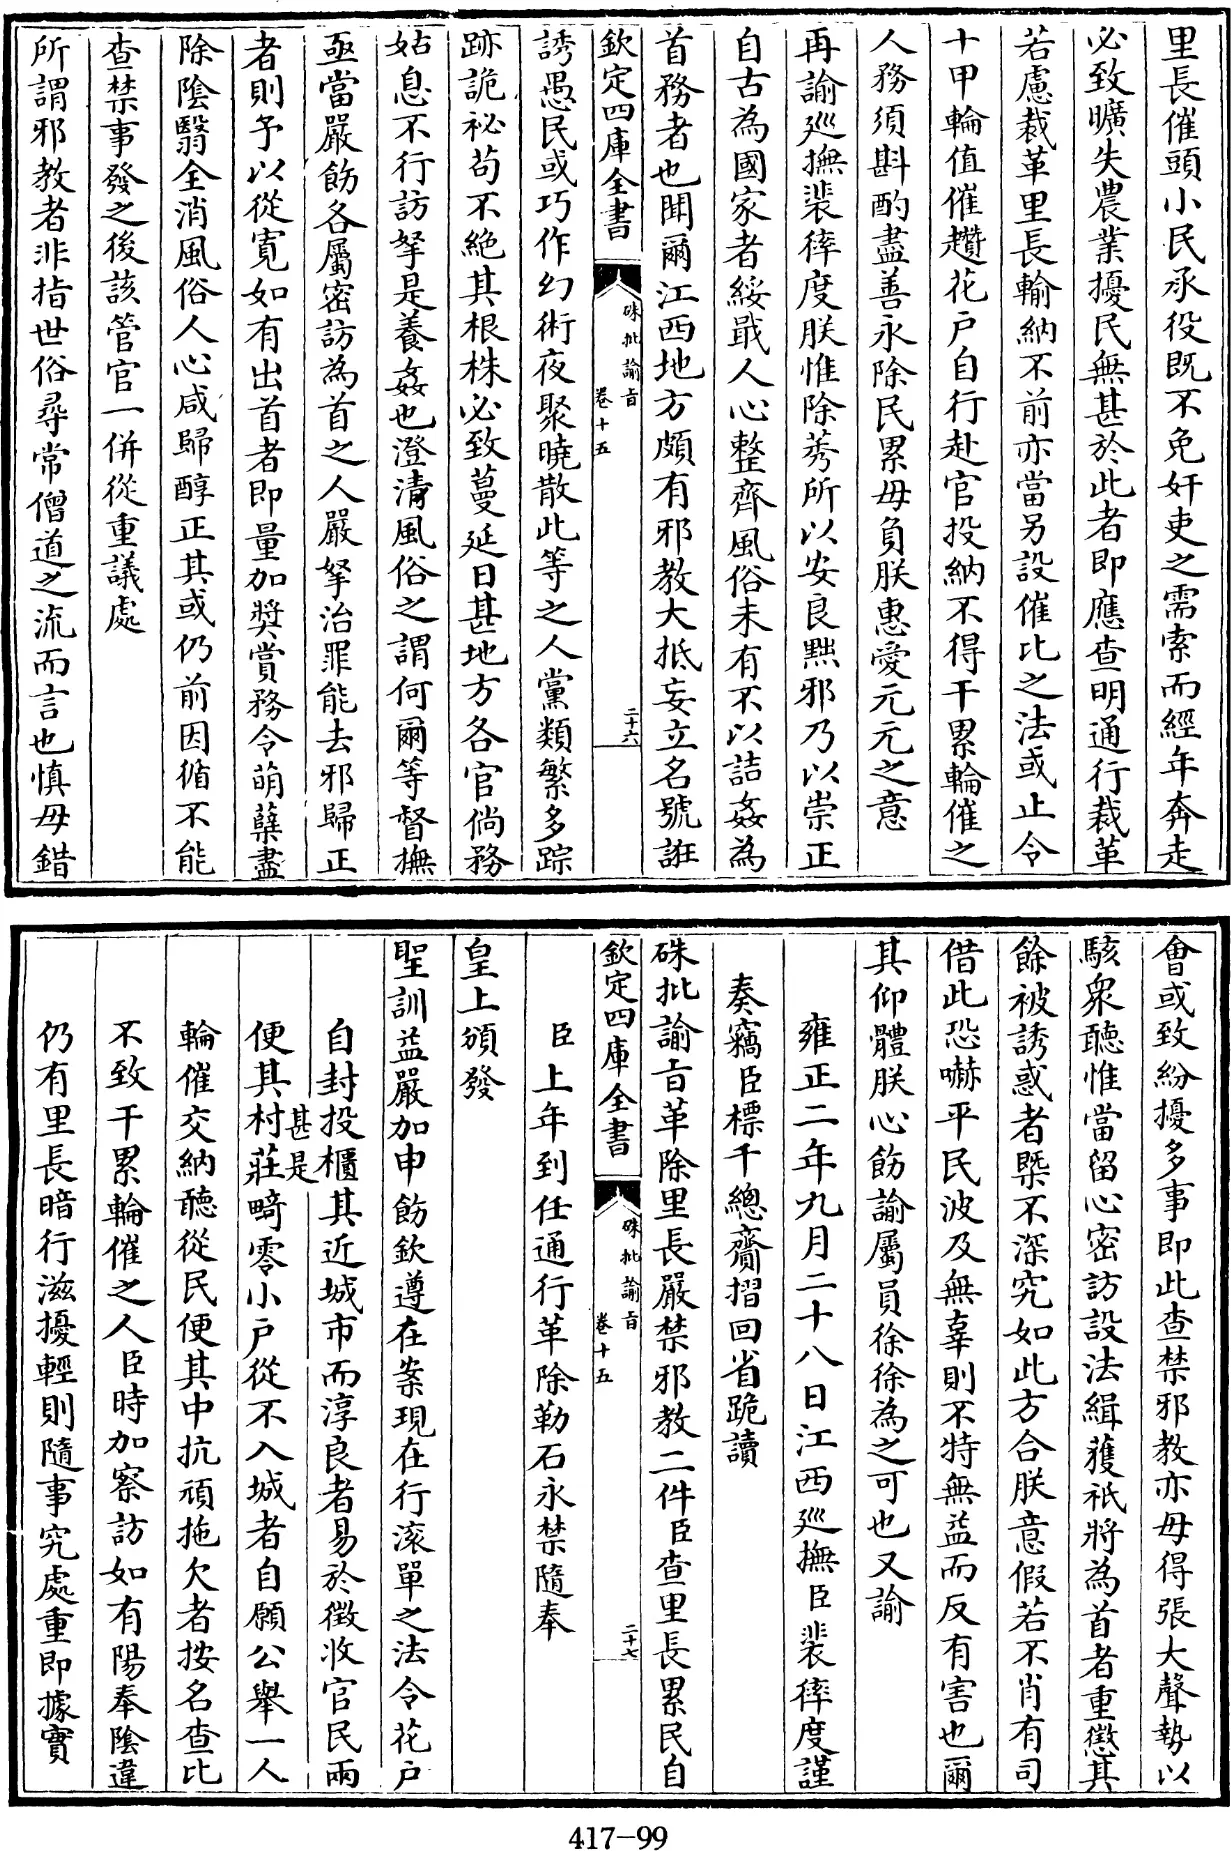 里長催頭小民承役旣不免奸吏之需索而經年奔走
必致曠失農業擾民無甚於此者即應查明通行裁革
若慮裁革里長輸納不前亦當另設催比之法或止令
十甲輪值催趲花户自行赴官投納不得干累輪催之
人務須斟酌盡善永除民累毋負朕惠愛元元之意
再諭廵撫裴𢕑度朕惟除莠所以安良黜邪乃以崇正
自古為國家者綏戢人心整齊風俗未有不以詰姦為
首務者也聞爾江西地方頗有邪教大抵妄立名號誑
欽定四庫全書
硃批諭旨
卷十五
二十六
誘愚民或巧作幻術夜聚曉散此等之人黨類繁多踪
跡詭祕茍不絶其根株必致蔓延日甚地方各官倘務
姑息不行訪拏是養姦也澄清風俗之謂何爾等督撫
亟當嚴飭各屬密訪為首之人嚴拏治罪能去邪歸正
者則予以從寛如有出首者即量加奬賞務令萌蘖盡
除陰翳全消風俗人心咸歸醇正其或仍前因循不能
查禁事發之後該管官一併從重議處
所謂邪教者非指世俗尋常僧道之流而言也慎毋錯
會或致紛擾多事即此查禁邪教亦毋得張大聲勢以
駭衆聽惟當留心密訪設法緝獲祇將為首者重懲其
餘被誘惑者槩不深究如此方合朕意假若不肖有司
借此恐嚇平民波及無辜則不特無益而反有害也爾
其仰體朕心飭諭屬員徐徐為之可也又諭
雍正二年九月二十八日江西廵撫臣裴𢕑度謹
奏竊臣標千總齎摺回省跪讀
硃批諭旨革除里長嚴禁邪教二件臣查里長累民自
欽定四庫全書
硃批諭旨
卷十五
二十七
臣上年到任通行革除勒石永禁隨奉
皇上頒發
聖訓益嚴加申飭欽遵在案現在行滚單之法令花户
自封投櫃其近城市而淳良者易於徵收官民兩
便甚是其村莊畸零小户從不入城者自願公舉一人
輪催交納聽從民便其中抗頑拖欠者按名查比
不致干累輪催之人臣時加察訪如有陽奉陰違
仍有里長暗行滋擾輕則隨事究處重即據實
417-99